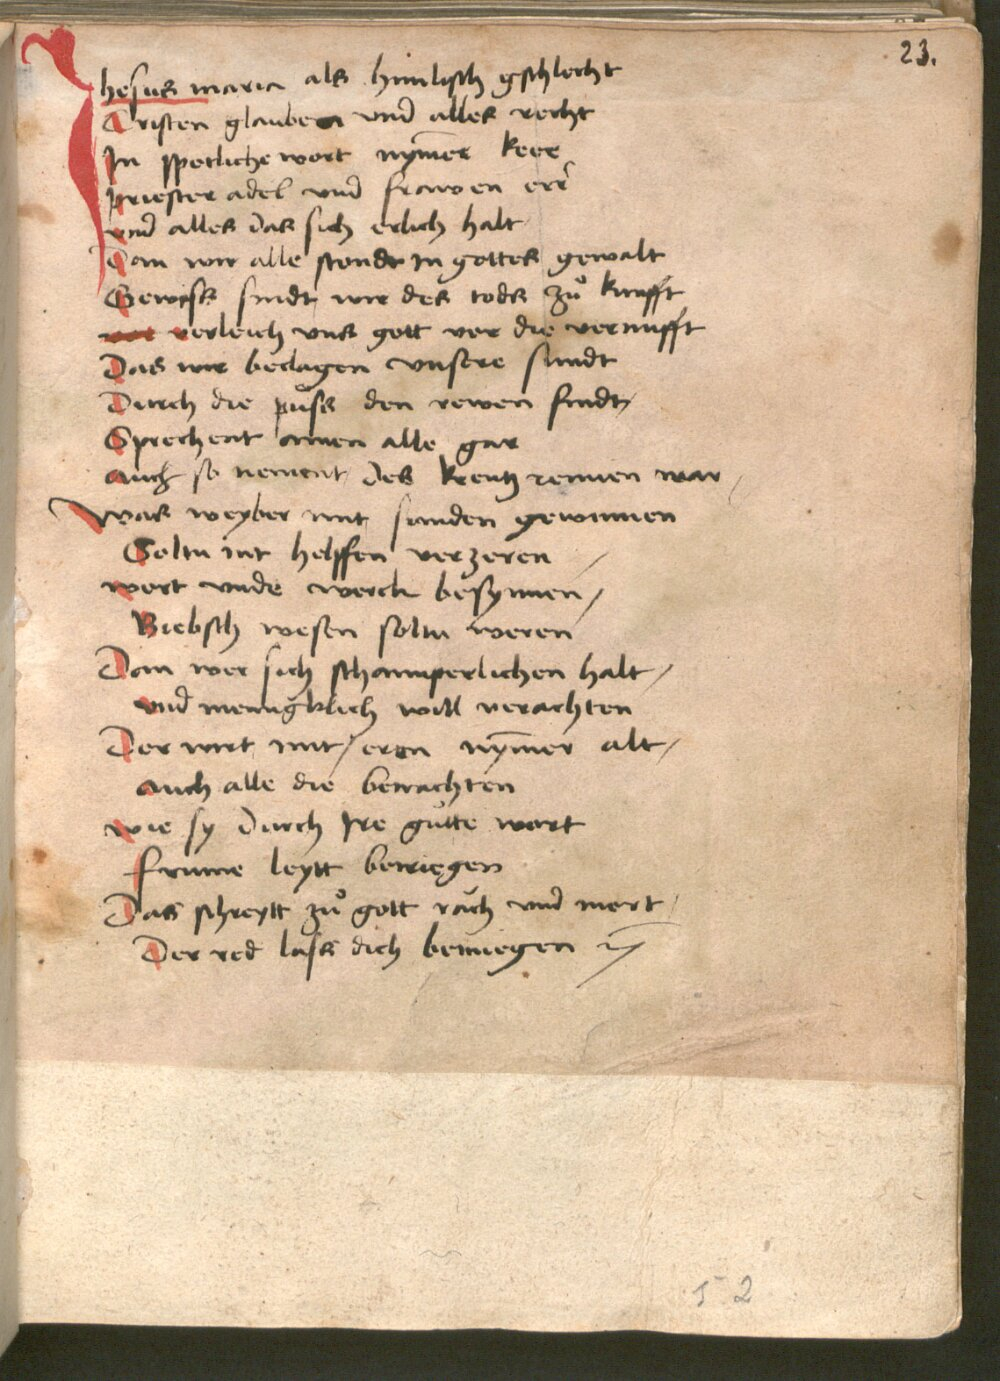 23.
Jhesus maria als himlisch gschlecht
Cristen glauben vnd alles recht
In spetliche wort nym̄er keer
priester adel vnd frawen err
vnd alles das sich erlich halt
Dan wir alle stondt in gottes gewalt
Gewiss sindt wir des tods zů krafft
verleich vns gott vor die vernufft
Das wir beclagen vnsere sundt
Durch die půss den rewen findt
Sprechent amen alle gar
auch so nement des kreutz rennen war
Was weyber mit sunden gewinnen
Soltu nit helffen verzeren
wort vnde werck besynnen
Biebsch wesen soltu weren
Dan wer sich schamperlichen halt
vnd menigklich will verachten
Der wirt mit eren nym̄er alt
auch alle die betrachten
wie sy durch Ire gütte wort
frume leytt betriegen
Das schreytt zů gott rach vnd mort
Der red lass dich beniegen
52